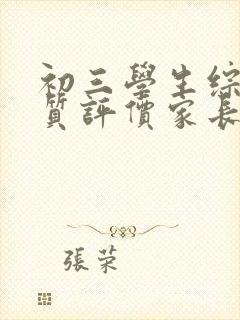 初三學生綜
質評價家長
張榮